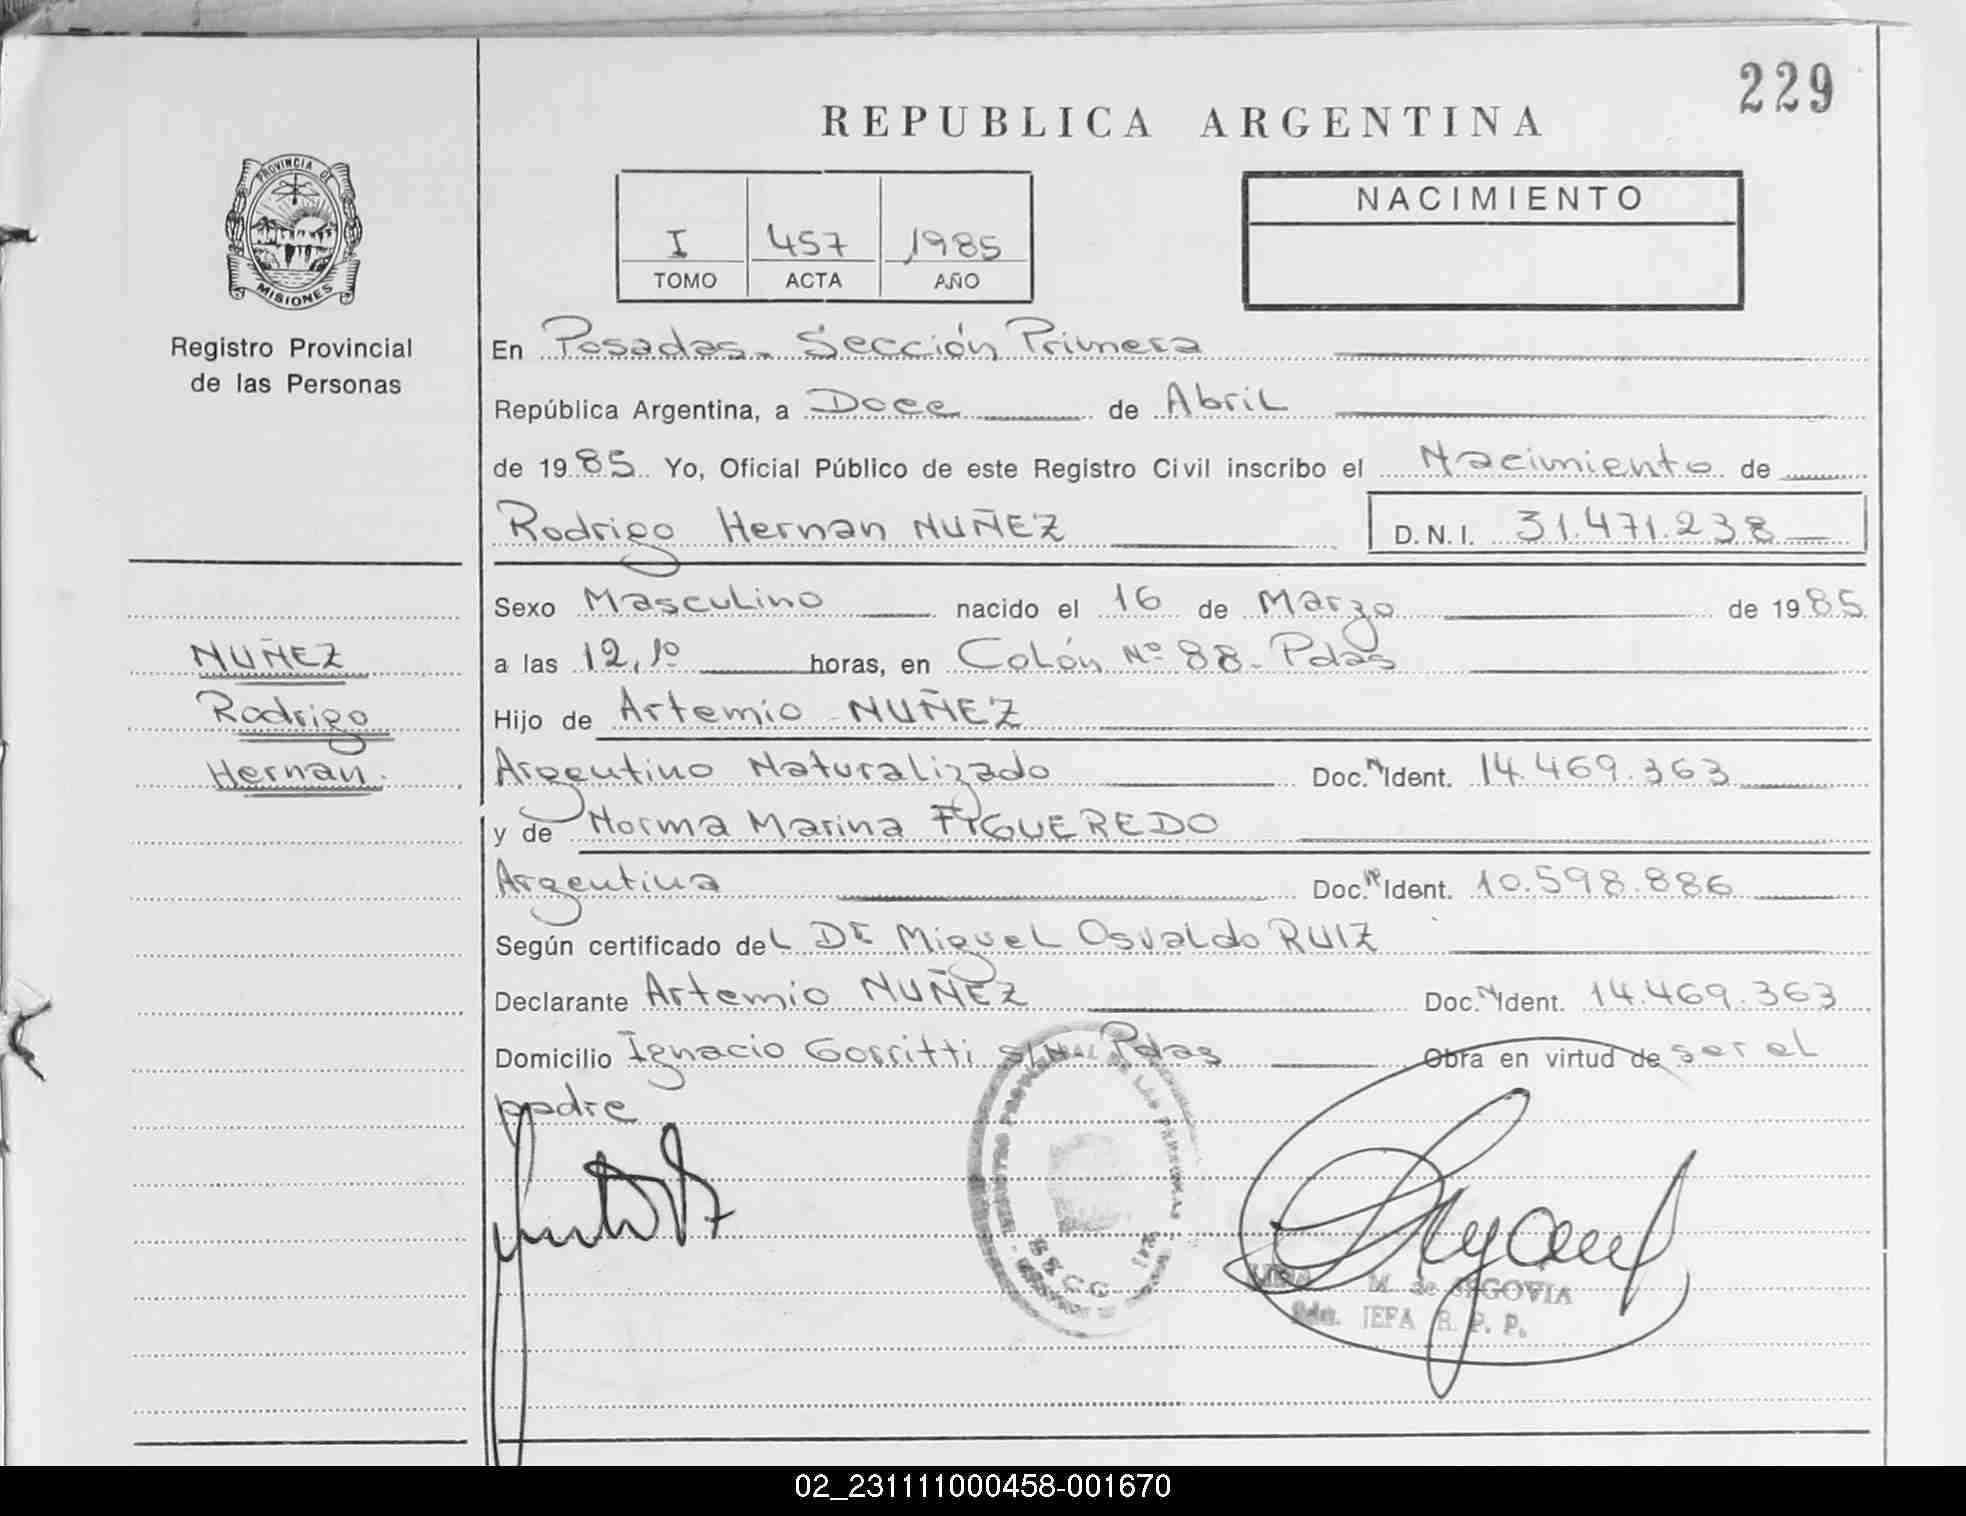 229
REPUBLICA ARGENTINA
PROVINCIA DE
MISIONES
Registro Provincial
de las Personas
I 457 1985
TOMO ACTA AÑO
NACIMIENTO
En Posadas. Sección Primera
República Argentina, a Doce de Abril
de 1985 Yo, Oficial Público de este Registro Civil inscribo el Nacimiento de
Rodrigo Hernan NUÑEZ D.N.I. 31.471.238
Sexo Masculino nacido el 16 de Marzo de 1985
NUÑEZ
a las 12,10 horas, en Colón Nº 88 - Pdas
Rodrigo
Hijo de Artemio NUÑEZ
Hernan.
Argentino Naturalizado Doc. Nº Ident. 14.469.363
y de Norma Marina FIGUEREDO
Argentina Doc. Nº Ident. 10.598.886
Según certificado del Dr Miguel Osvaldo RUIZ
Declarante Artemio NUÑEZ Doc. Nº Ident. 14.469.363
Domicilio Ignacio Gorritti S/N Pdas Obra en virtud de ser el
padre
M. de SEGOVIA
JEFA R. P. P.
02_231111000458-001670